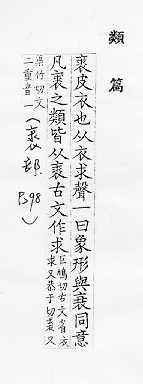 類篇
裘皮衣也从衣求聲一曰象形與衰同意
凡裘之類皆从裘古文作求巨鳩切古文省衣
求又恭于切裘又
渠竹切文
二重音一(裘部
P.98)